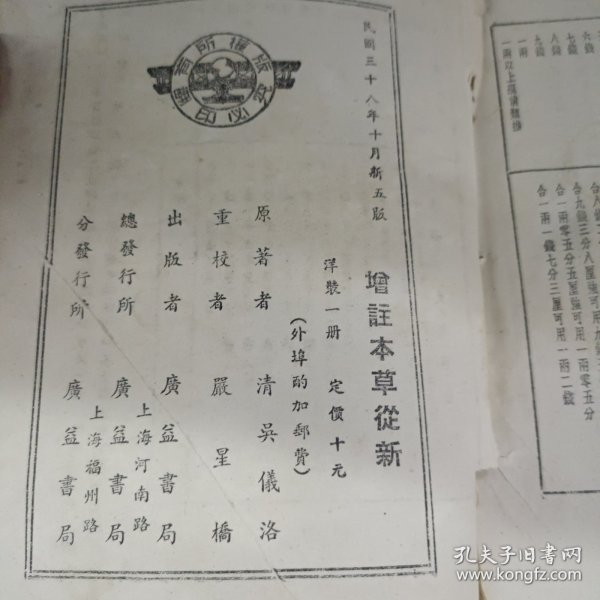 民國三十八年十月新五版
增註本草從新
洋裝一册 定價十元
(外埠酌加郵費)
原著者 清吳儀洛
重校者 嚴星橋
出版者 廣益書局
總發行所 上海河南路 廣益書局
分發行所 上海福州路 廣益書局
版權所有
翻印必究
六錢
七錢
八錢
九錢
一兩
合九錢三分八厘強可用九
合一兩零五分五厘強可用一兩零五分
合一兩一錢七分三厘可用一兩二錢
孔夫子旧书网
www.kongfz.com